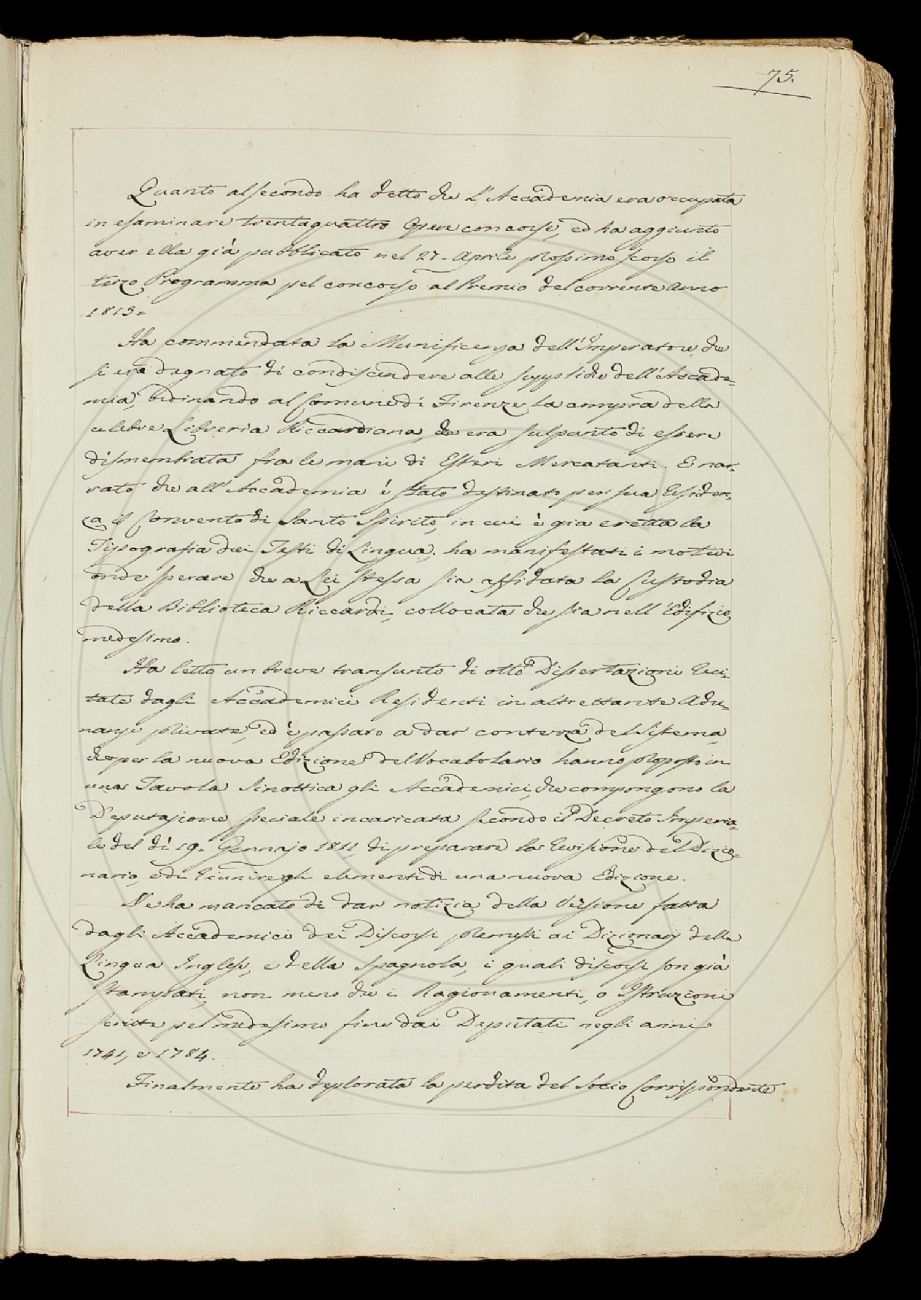 75.
Quanto al secondo ha detto che l'Accademia era occupata
in esaminare trentaquattro Opere concorse, ed ha aggiunto
aver ella già pubblicato nel 27. Aprile prossimo scorso il
terzo Programma pel concorso al Premio del corrente Anno
1813.
Ha commendata la Munificenza dell'Imperatore, che
si era degnato di condiscendere alle suppliche dell'Accade-
mia, ordinando al Comune di Firenze la compra della
celebre Libreria Riccardiana, che era sul punto di essere
dismembrata fra le mani di Esteri Mercatanti. E nar-
rato che all'Accademia è stato destinato per sua Residen-
za il Convento di Santo Spirito, in cui è già eretta la
Tipografia dei Testi di Lingua, ha manifestati i motivi
onde sperare che a Lei stessa sia affidata la Custodia
della Biblioteca Riccardi, collocata che sia nell'Edifizio
medesimo.
Ha letto un breve transunto di otto Dissertazioni Reci-
tate dagli Accademici Residenti in altrettante Adu-
nanze private, ed è passato a dar contezza del Sistema,
che per la nuova Edizione del Vocabolario hanno proposto in
una Tavola Sinottica gli Accademici, che compongono la
Deputazione speciale incaricata secondo il Decreto Imperia-
le del dì 19. Gennajo 1811. di preparare la Revisione del Dizio-
nario, e di riunire gli elementi di una nuova Edizione.
Ne ha mancato di dar notizia della Versione fatta
dagli Accademici dei Discorsi premessi ai Dizionarj della
Lingua Inglese, e della Spagnola, i quali discorsi son già
stampati, non meno che i Ragionamenti, o Istruzioni
scritte pel medesimo fine dai Deputati negli anni
1741, e 1784.
Finalmente ha deplorata la perdita del Socio Corrispondente